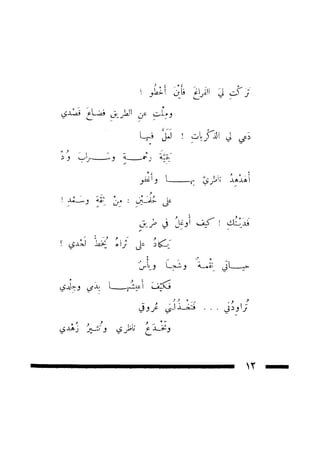 تركتِ ليَ الفراغَ فأيْنَ أخطُو !
وملْتِ عن الطريقِ فضاعَ قصْدي
دَعي لي الذكرياتِ ! لعَلَّ فيها
بقيّةَ رحمةٍ وسرابَ وُدِّ
أهدْهِدُ ناظريَّ بها وأغفو
على حُلُمَيْنِ : مِنْ نِقَمٍ وسَعْدِ !
فديْتُكِ ! كيف أُوغلُ في طريقٍ
يَكادُ على ثَراهُ يُخَطُّ لحْدي ؟
حياتي نِقْمةٌ وشجاً ويأسٌ
فكيْفَ أُعيشُها بدَمي وجِلْدي
تُراودُني ... فتخْذُلُني عُروقي
وتخْدَعُ ناظري وتُثيرُ زُهْدي
١٢